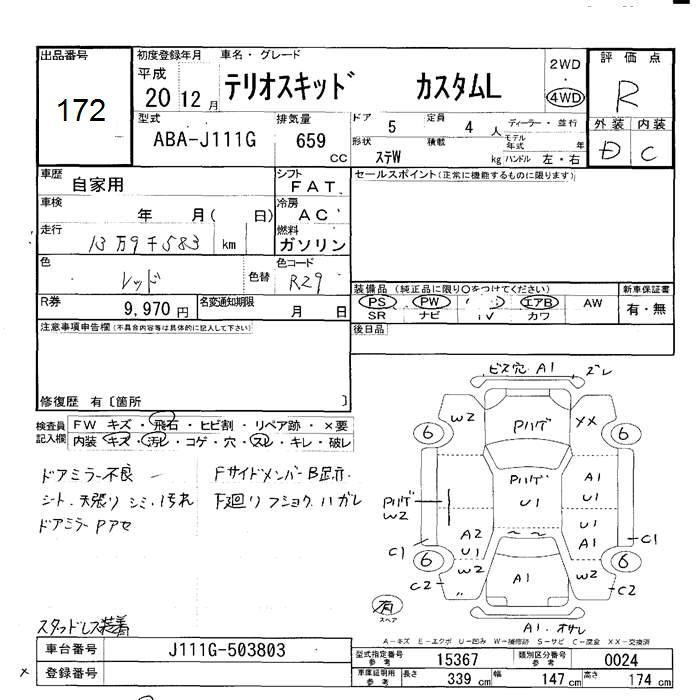 出品番号
172
初度登録年月
平成
20 12 月
車名・グレード
テリオスキッド カスタムL
2WD
・
4WD
評価点
R
外装 内装
D C
型式
ABA-J111G
排気量
659
cc
ドア 5 定員 4 人
ディーラー・並行
形状 ステW 積載 kg
モデル年式 年
ハンドル 左・右
車歴
自家用
シフト
FAT
車検
年 月( 日)
冷房
AC
走行
13万9千583 km
燃料
ガソリン
色
レッド
色替
色コード
R29
R券
9,970 円
名変通知期限
月 日
セールスポイント(正常に機能するものに限ります)
装備品 (純正品に限り○をつけてください)
PS PW エアB AW
SR ナビ TV カワ
新車保証書
有・無
後日品
注意事項申告欄(不具合内容等は具体的に記入して下さい)
修復歴 有〔箇所 〕
検査員記入欄
FW キズ・飛石・ヒビ割・リペア跡・×要
内装・キズ・汚レ・コゲ・穴・スレ・キレ・破レ
ドアミラー不良
シート、天張り シミ、汚れ
ドアミラー Pアセ
FサイドメンバーB足亦
F廻り フショク ハガレ
スタッドレス装着
ビス穴 A1 ズレ
W2 Pハゲ XX
6 6
Pハゲ U1
A1
Pハゲ W2
U1
A1
A2
U1
C1 C1
6 6
W2 W2
C2 C2
A1
有
スペア
A1、オサレ
A-キズ E-エクボ U-凹み W-補修跡 S-サビ C-腐食 XX-交換済
車台番号 J111G-503803
× 登録番号
型式指定番号 参考 15367 類別区分番号 参考 0024
車庫証明用 参考 長さ 339 cm 幅 147 cm 高さ 174 cm